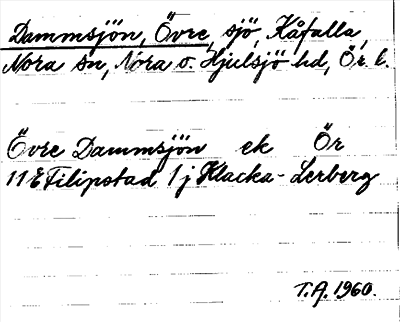 Dammsjön, Övre, sjö, Kåfalla,
Nora sn, Nora o. Hjulsjö hd, Ör. l.
Övre Dammsjön ek Ör
11 E Filipstad 1 j Klacka-Lerberg
T.A. 1960.